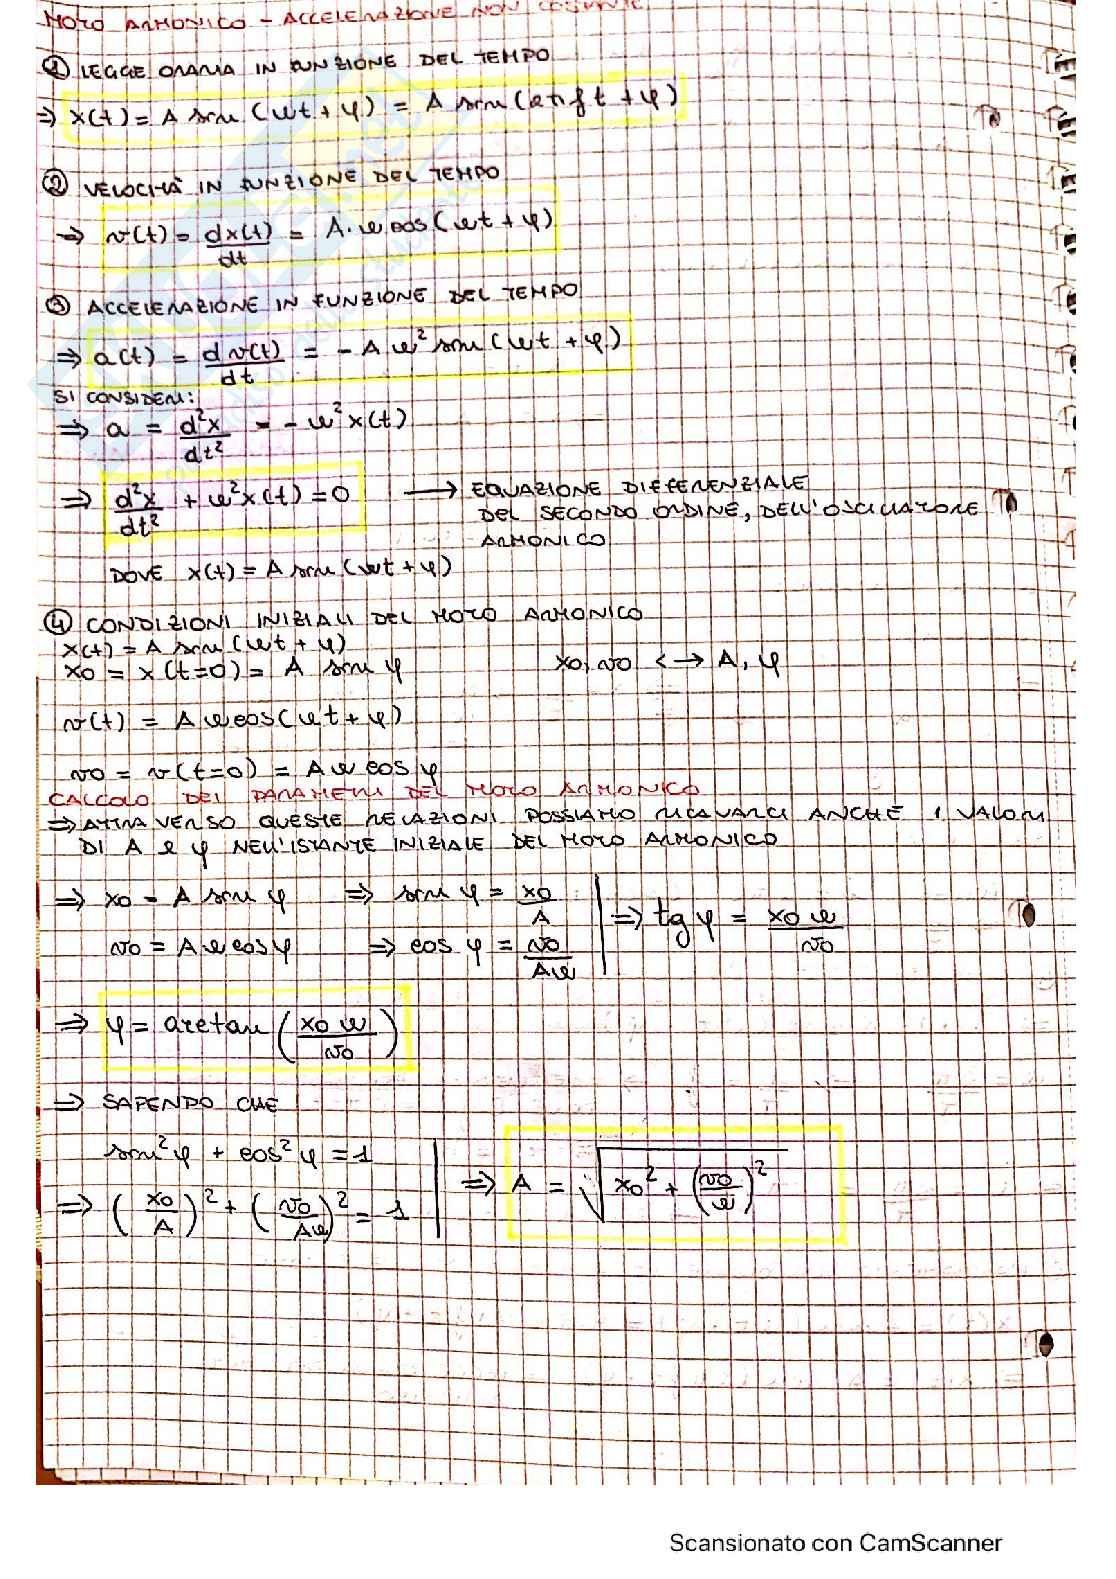 MOTO ARMONICO - ACCELERAZIONE NON COSTANTE
① LEGGE ORARIA IN FUNZIONE DEL TEMPO
⇒ x(t) = A sen (ωt + φ) = A sen (2πf t + φ)
② VELOCITÀ IN FUNZIONE DEL TEMPO
⇒ v(t) = dx(t)/dt = A·ω cos (ωt + φ)
③ ACCELERAZIONE IN FUNZIONE DEL TEMPO
⇒ a(t) = dv(t)/dt = - A ω² sen (ωt + φ)
SI CONSIDERI:
⇒ a = d²x/dt² = - ω² x(t)
⇒ d²x/dt² + ω² x(t) = 0 → EQUAZIONE DIFFERENZIALE
DEL SECONDO ORDINE, DELL'OSCILLATORE
ARMONICO
DOVE x(t) = A sen (ωt + φ)
④ CONDIZIONI INIZIALI DEL MOTO ARMONICO
x(t) = A sen (ωt + φ)
x0 = x (t=0) = A sen φ x0, v0 <-> A, φ
v(t) = A ω cos (ωt + φ)
v0 = v (t=0) = A ω cos φ
CALCOLO DEI PARAMETRI DEL MOTO ARMONICO
⇒ ATTRAVERSO QUESTE RELAZIONI POSSIAMO RICAVARCI ANCHE I VALORI
DI A e φ NELL'ISTANTE INIZIALE DEL MOTO ARMONICO
⇒ x0 = A sen φ ⇒ sen φ = x0/A | ⇒ tg φ = x0 ω/v0
v0 = A ω cos φ ⇒ cos φ = v0/Aω
⇒ φ = arctan (x0 ω/v0)
⇒ SAPENDO CHE
sen² φ + cos² φ = 1
⇒ (x0/A)² + (v0/Aω)² = 1 | ⇒ A = √(x0² + (v0/ω)²)
Scansionato con CamScanner